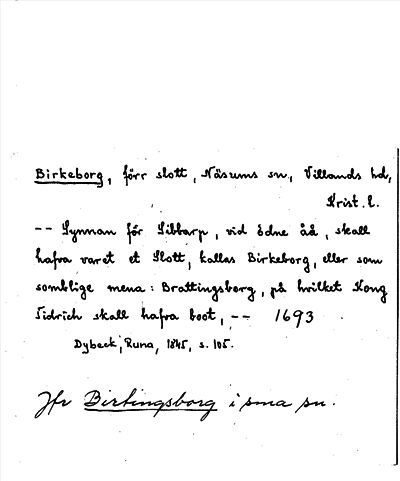 Birkeborg, förr slott, Näsums sn, Villands hd,
Krist. l.
-- Synnan för Sibbarp, vid Edne åå, skall
hafva varet et Slott, kallas Birkeborg, eller som
somblige mena: Brattingsborg, på hvilket Kong
Tidrich skall hafva boot, -- 1693
Dybeck, Runa, 1845, s. 105.
Jfr Birtingsborg i sma sn.